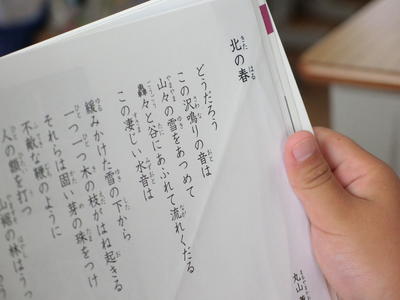 北の春
丸山
どうだろう
この沢鳴りの音は
山々の雪をあつめて
轟々と谷にあふれて流れくだる
この凄じい水音は
緩みかけた雪の下から
一つ一つ木の枝がはね起きる
それらは固い芽の珠をつけ
不敵な鞭のように
人の額を打つ
山裾の林はうっ